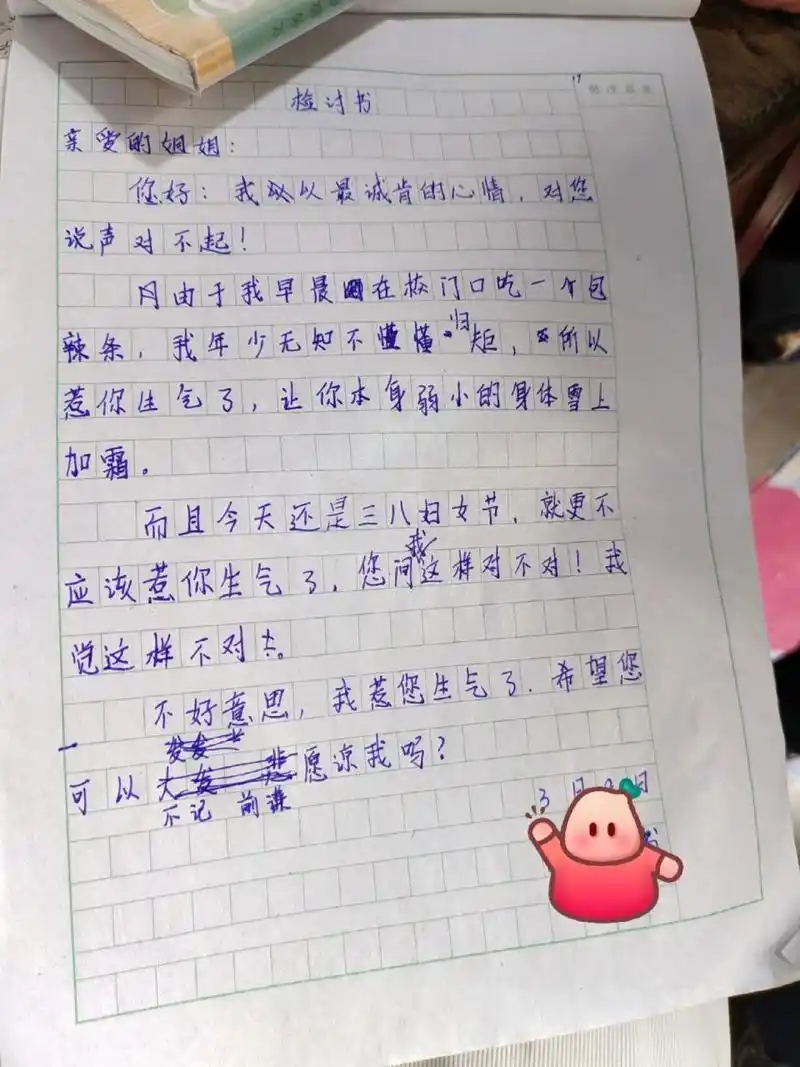 检讨书
亲爱的姐姐：
您好：我以最诚肯的心情，对您
说声对不起！
由于我早晨在校门口吃一个包
辣条，我年少无知不懂归矩，所以
惹你生气了，让你本身弱小的身体雪上
加霜。
而且今天还是三八妇女节，就更不
应该惹你生气了，您问我这样对不对！我
觉这样不对。
不好意思，我惹您生气了．希望您
可以不记前谦愿凉我吗？
3月 日